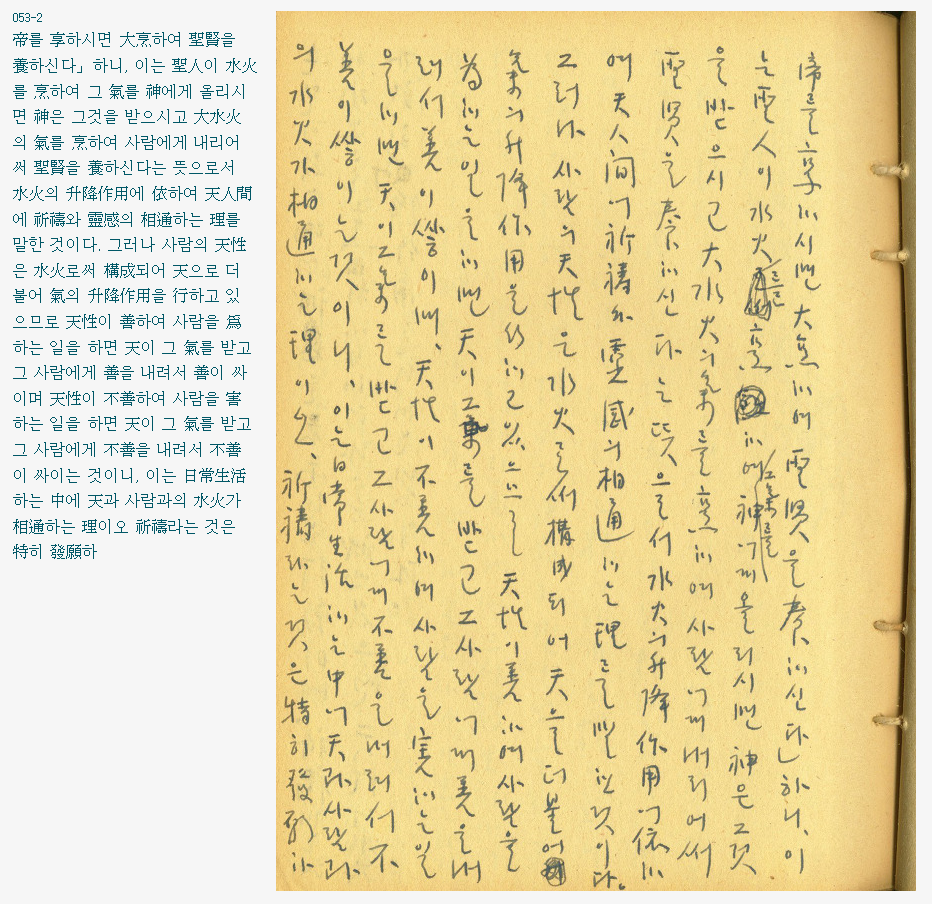 053-2
帝를 享하시면 大烹하여 聖賢을
養하신다」하니, 이는 聖人이 水火
를 烹하여 그 氣를 神에게 올리시
면 神은 그것을 받으시고 大水火
의 氣를 烹하여 사람에게 내리어
써 聖賢을 養하신다는 뜻으로서
水火의 升降作用에 依하여 天人間
에 祈禱와 靈感의 相通하는 理를
말한 것이다. 그러나 사람의 天性
은 水火로써 構成되어 天으로 더
불어 氣의 升降作用을 行하고 있
으므로 天性이 善하여 사람을 爲
하는 일을 하면 天이 그 氣를 받고
그 사람에게 善을 내려서 善이 싸
이며 天性이 不善하여 사람을 害
하는 일을 하면 天이 그 氣를 받고
그 사람에게 不善을 내려서 不善
이 싸이는 것이니, 이는 日常生活
하는 中에 天과 사람과의 水火가
相通하는 理이오 祈禱라는 것은
特히 發願하
帝를 享하시면 大烹하여 聖賢을 養하신다」하니, 이
는 聖人이 水火를 烹하여 그 氣를 神에게 올리시면 神은 그것
을 받으시고 大水火의 氣를 烹하여 사람에게 내리어써
聖賢을 養하신다는 뜻으로서 水火의 升降作用에 依하
여 天人間에 祈禱와 靈感의 相通하는 理를 말한 것이다.
그러나 사람의 天性은 水火로써 構成되어 天으로 더불어
氣의 升降作用을 行하고 있으므로 天性이 善하여 사람을
為하는 일을 하면 天이 그 氣를 받고 그 사람에게 善을 내
려서 善이 쌓이며, 天性이 不善하여 사람을 害하는 일
을 하면 天이 그 氣를 받고 그 사람에게 不善을 내려서 不
善이 쌓이는 것이니, 이는 日常生活하는 中에 天과 사람과
의 水火가 相通하는 理이오, 祈禱라는 것은 特히 發願하